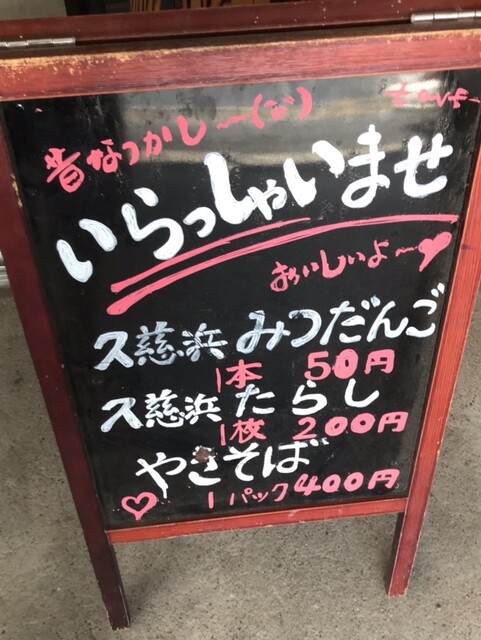 昔なつかし〜(ಲ)
いらっしゃいませ
おいしいよ〜♥
久慈浜 みつだんご
1本 50円
久慈浜 たらし
1枚 200円
やきそば
♡ 1パック400円